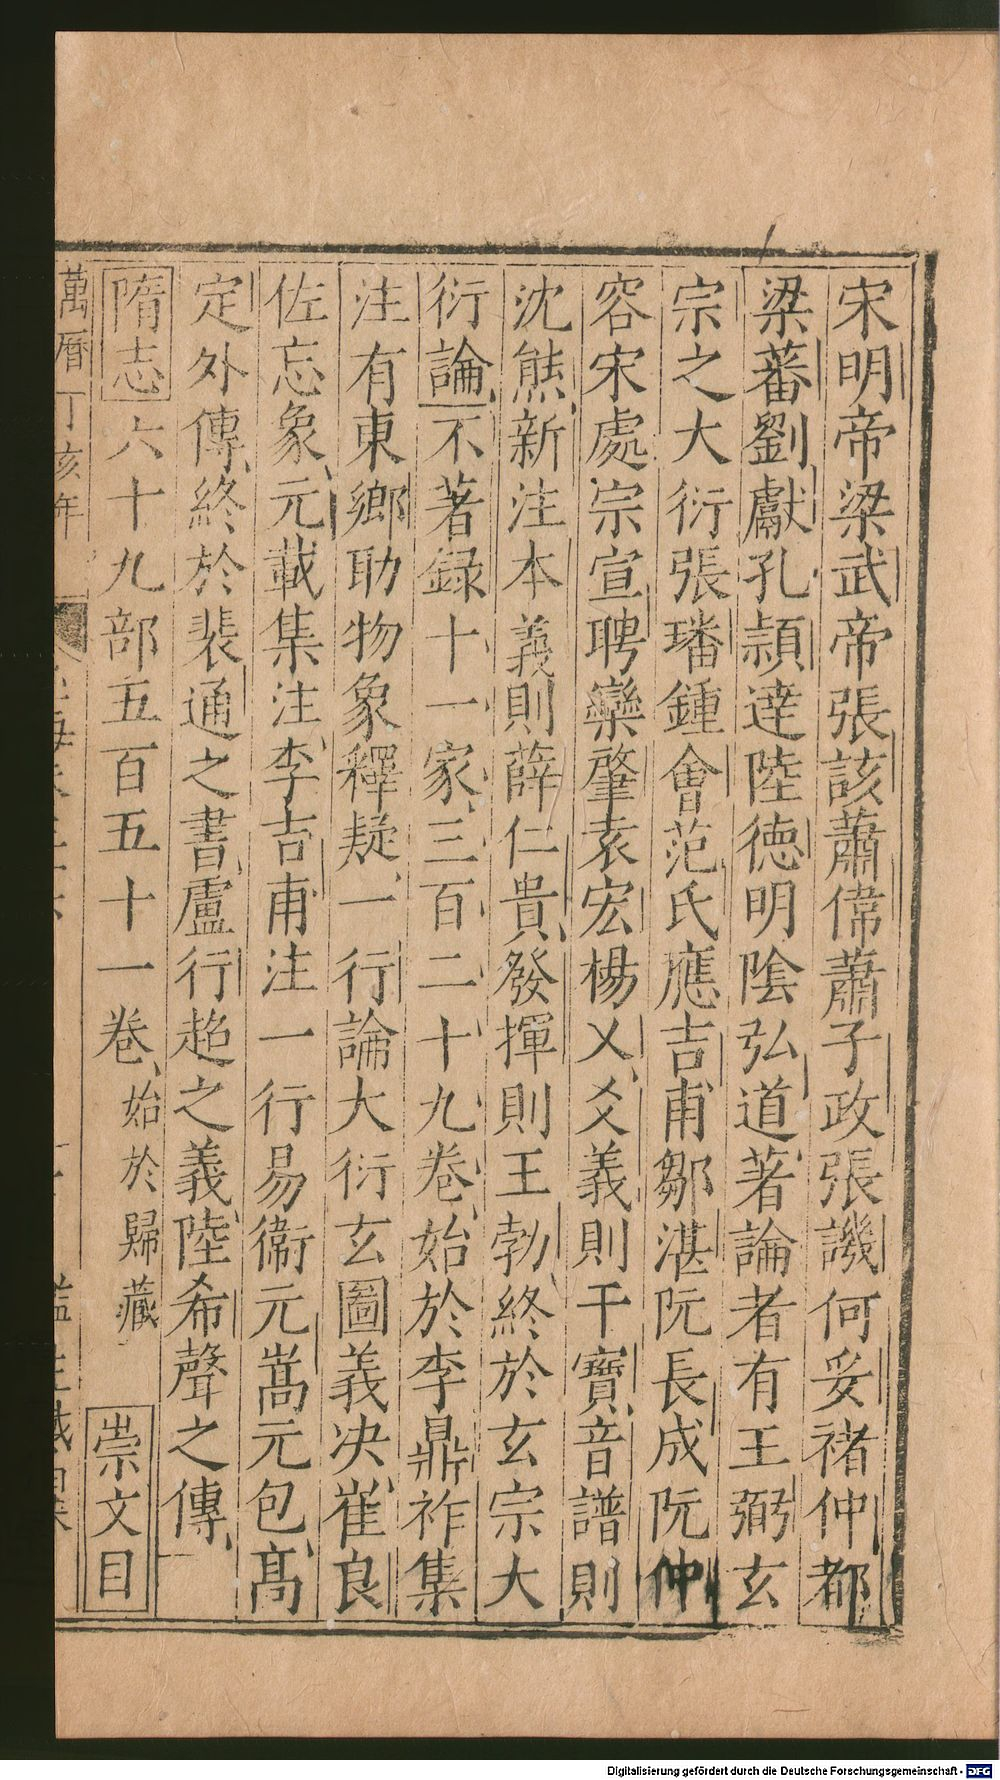 宋明帝梁武帝張該蕭偉蕭子政張譏何妥褚仲都
梁蕃劉獻孔頴達陸德明陰弘道著論者有王弼玄
宗之大衍張璠鍾會范氏應吉甫鄒湛阮長成阮仲
容宋處宗宣聘欒肇袁宏楊乂爻義則干寶音譜則
沈熊新注本義則薛仁貴發揮則王勃終於玄宗大
衍論不著録十一家三百二十九卷始於李鼎祚集
注有東鄉助物象釋疑一行論大衍玄圖義决崔良
佐忘象元載集注李吉甫注一行易衞元嵩元包髙
定外傳終於裴通之書盧行超之義陸希聲之傳
隋志六十九部五百五十一卷始於歸藏 崇文目
萬曆丁亥年
Digitalisierung gefördert durch die Deutsche Forschungsgemeinschaft - DFG